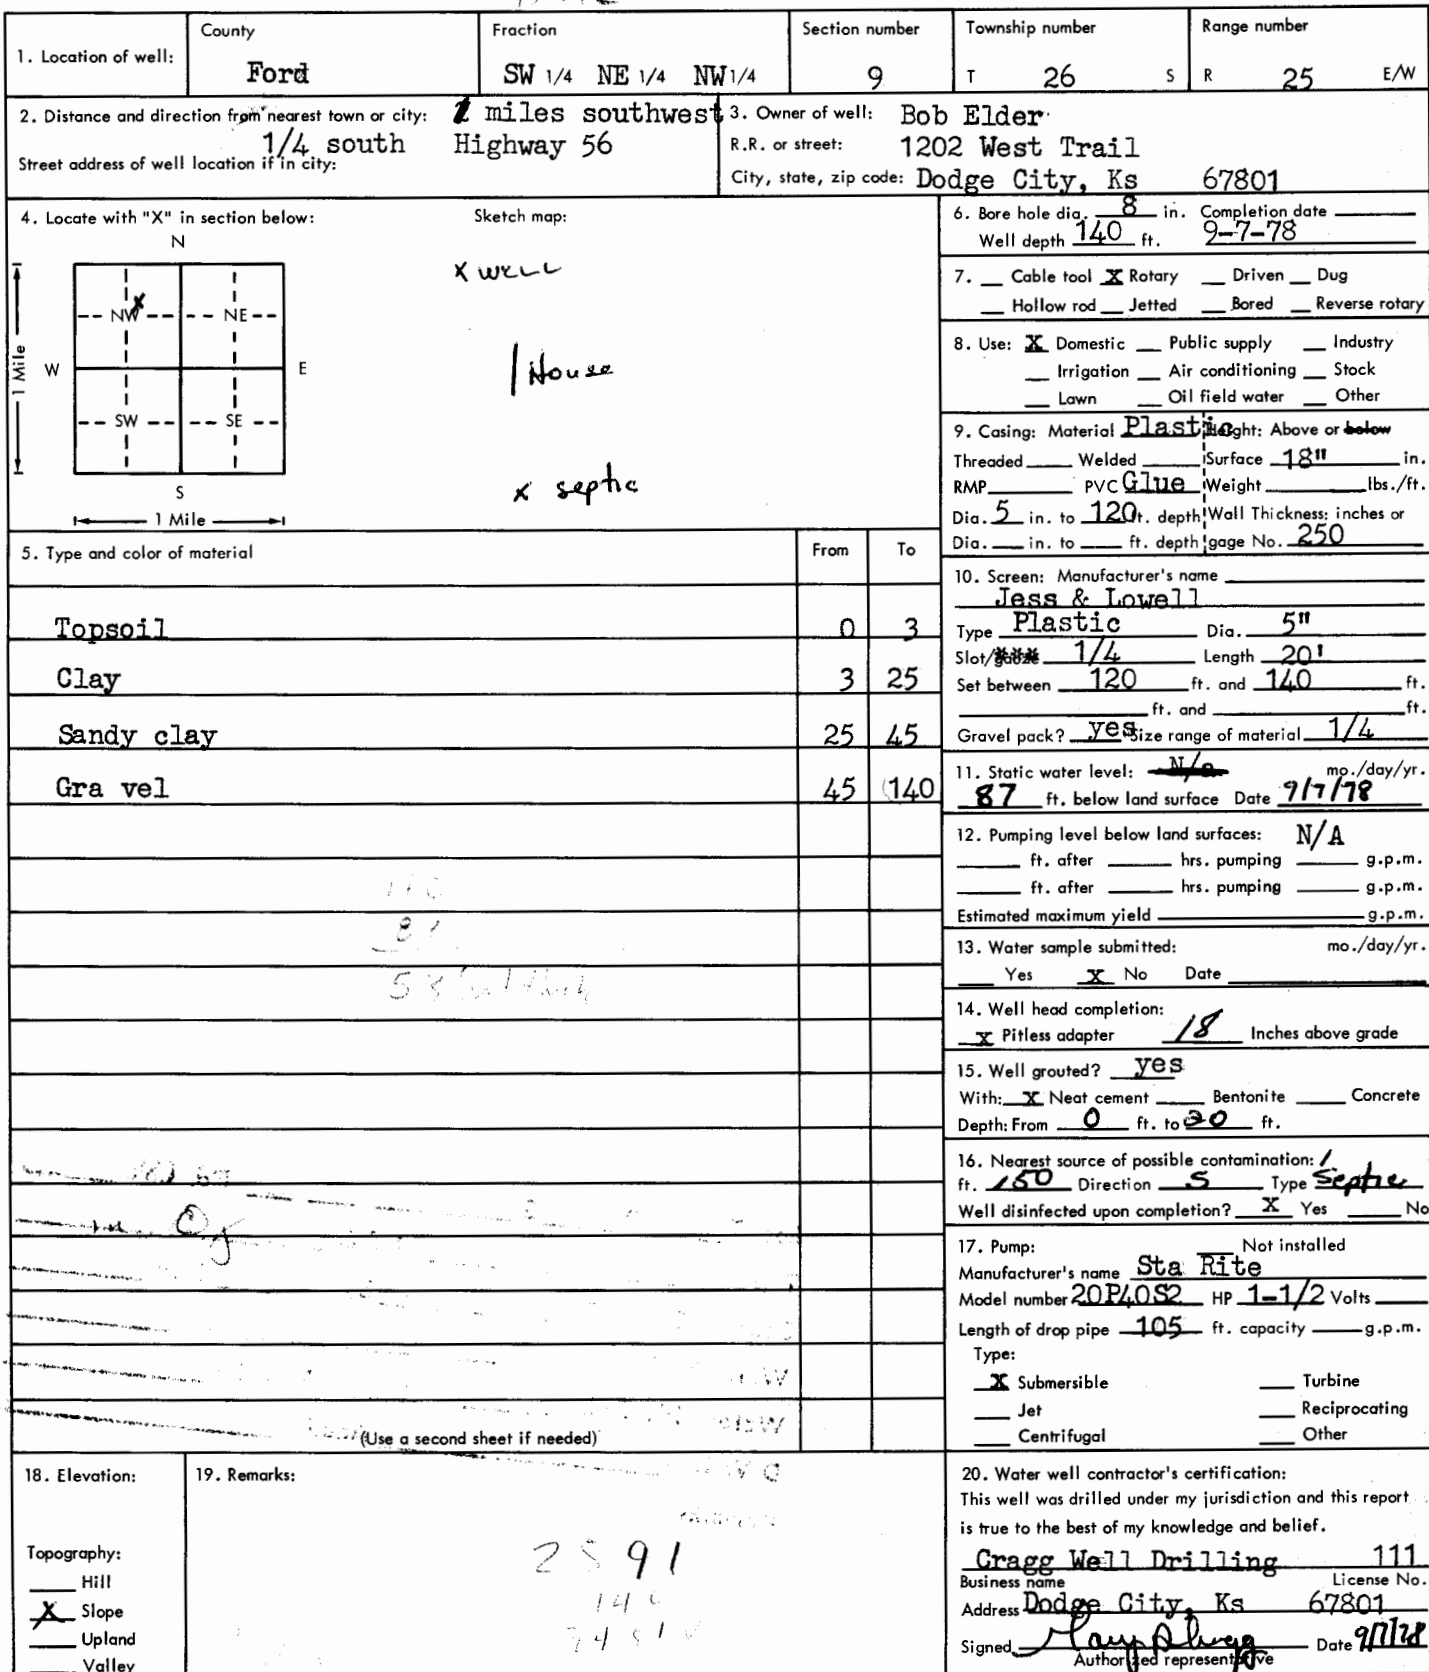 County Fraction Section number Township number Range number
1. Location of well: Ford SW 1/4 NE 1/4 NW 1/4 9 T 26 S R 25 E/W
2. Distance and direction from nearest town or city: miles southwest
1/4 south Highway 56
Street address of well location if in city:
3. Owner of well: Bob Elder
R.R. or street: 1202 West Trail
City, state, zip code: Dodge City, Ks 67801
4. Locate with "X" in section below: Sketch map:
N
X WELL
NW X NE
1 Mile W E
House
SW SE
X septic
S
1 Mile
5. Type and color of material From To
Topsoil 0 3
Clay 3 25
Sandy clay 25 45
Gra vel 45 140
(Use a second sheet if needed)
6. Bore hole dia. 8 in. Completion date
Well depth 140 ft. 9-7-78
7. Cable tool X Rotary Driven Dug
Hollow rod Jetted Bored Reverse rotary
8. Use: X Domestic Public supply Industry
Irrigation Air conditioning Stock
Lawn Oil field water Other
9. Casing: Material Plastic Height: Above or below
Threaded Welded Surface 18" in.
RMP PVC Glue Weight lbs./ft.
Dia. 5 in. to 120 ft. depth Wall Thickness: inches or
Dia. in. to ft. depth gage No. 250
10. Screen: Manufacturer's name
Jess & Lowell
Type Plastic Dia. 5"
Slot/gauze 1/4 Length 20'
Set between 120 ft. and 140 ft.
ft. and ft.
Gravel pack? yes Size range of material 1/4
11. Static water level: N/a mo./day/yr.
87 ft. below land surface Date 9/7/78
12. Pumping level below land surfaces: N/A
ft. after hrs. pumping g.p.m.
ft. after hrs. pumping g.p.m.
Estimated maximum yield g.p.m.
13. Water sample submitted: mo./day/yr.
Yes X No Date
14. Well head completion:
X Pitless adapter 18 Inches above grade
15. Well grouted? yes
With: X Neat cement Bentonite Concrete
Depth: From 0 ft. to 20 ft.
16. Nearest source of possible contamination:
ft. 150 Direction S Type Septic
Well disinfected upon completion? X Yes No
17. Pump: Not installed
Manufacturer's name Sta Rite
Model number 20P40S2 HP 1-1/2 Volts
Length of drop pipe 105 ft. capacity g.p.m.
Type:
X Submersible Turbine
Jet Reciprocating
Centrifugal Other
18. Elevation:
Topography:
Hill
X Slope
Upland
Valley
19. Remarks:
2591
20. Water well contractor's certification:
This well was drilled under my jurisdiction and this report
is true to the best of my knowledge and belief.
Cragg Well Drilling 111
Business name License No.
Address Dodge City, Ks 67801
Signed Date 9/7/78
Authorized representative